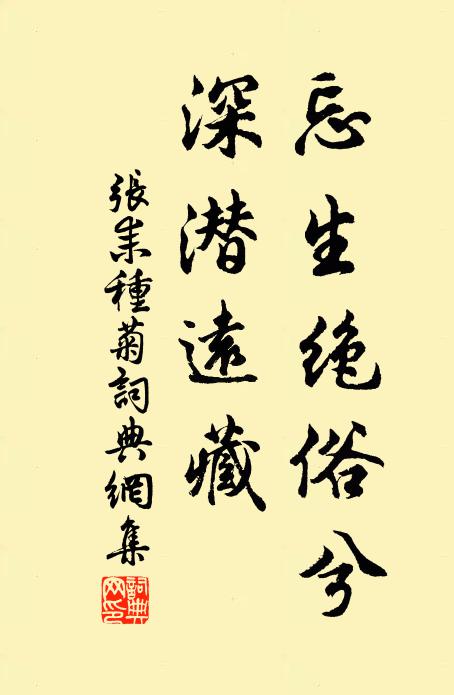 忘生绝俗兮
深潜遠藏
張耒種菊詞典網集
詞典网印